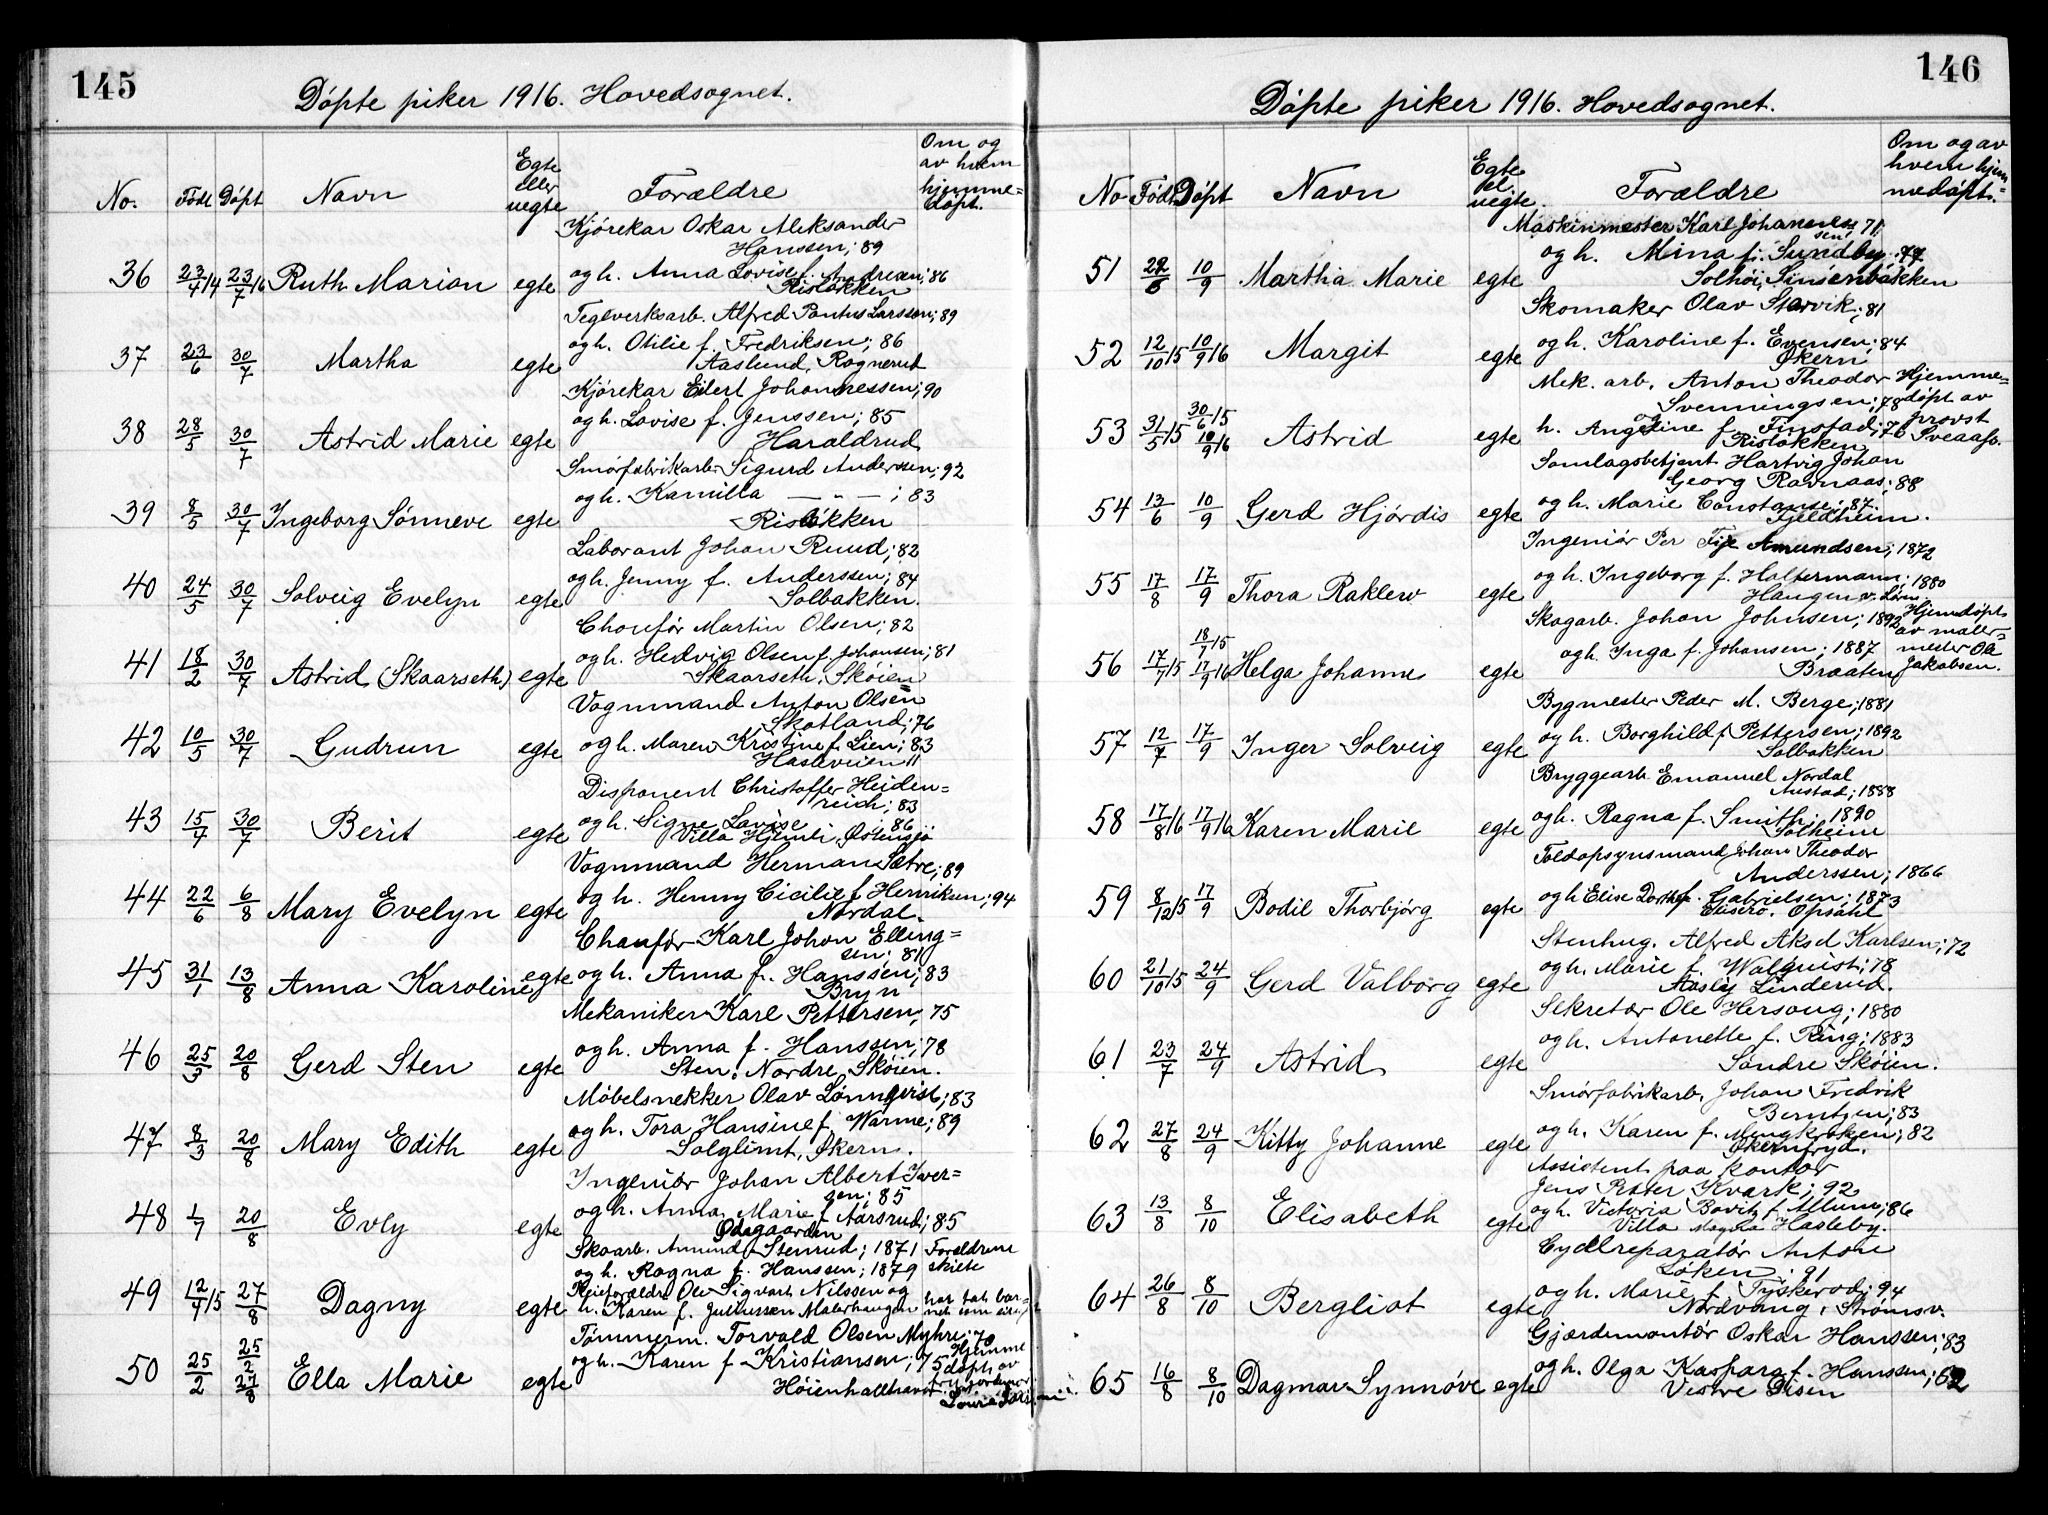 145
Døpte piker 1916. Hovedsognet.
No. Født Døpt Navn Egte eller uegte Forældre Om og av hvem hjemme=døpt.
Kjørekar Oskar Aleksander
Hanssen; 89
36 23/4 14 23/7 16 Ruth Marion egte og h. Anna Lovise f. Andresen; 86
Risløkken
Teglverksarb. Alfred Pontus Larsson; 89
og h. Otilie f. Fredriksen; 86
37 23/6 30/7 Martha egte Aaslund, Rognerud
Kjørekar Eilert Johannessen; 90
og h. Lovise f. Jenssen; 85
38 28/5 30/7 Astrid Marie egte Haraldrud
Smørfabrikarb. Sigurd Anderssen; 92
og h. Kamilla — " — ; 83
39 8/5 30/7 Ingeborg Sønneve egte Risløkken
Laborant Johan Ruud; 82
og h. Jenny f. Anderssen; 84
40 24/5 30/7 Solveig Evelyn egte Solbakken.
Chouför Martin Olsen; 82
og h. Hedvig Olsen f. Johansen; 81
41 18/2 30/7 Astrid (Skaarseth) egte Skaarseth, Skøien
Vognmand Anton Olsen
Skotland; 76
42 10/5 30/7 Gudrun egte og h. Maren Kristine f. Lien; 83
Hasleveien 11
Disponent Christoffer Heiden=
reich; 83
og h. Signe Lovise 86
43 15/4 30/7 Berit egte Villa Hjemli, Østensjø
Vognmand Herman Sætre; 89
44 22/6 6/8 Mary Evelyn egte og h. Henny Cicilie f. Henriksen; 94
Nordal.
Chauför Karl Johan Elling=
sen; 81
45 31/1 13/8 Anna Karoline egte og h. Anna f. Hanssen; 83
Bryn
Mekaniker Karl Pettersen; 75
og h. Anna f. Hanssen; 78
46 25/3 20/8 Gerd Sten egte Sten, Nordre Skøien.
Møbelsnekker Olav Lønnqvist; 83
og h. Tora Hansine f. Warme; 89
47 8/3 20/8 Mary Edith egte Solglimt, Økern.
Ingeniør Johan Albert Iver=
sen; 85
og h. Anna Marie f. Aarsrud; 85
48 1/7 20/8 Evly egte
Skoarb. Amund Stenrud; 1871 Forældrene
og h. Ragna f. Hanssen; 1879 skilte
Pleieforældre Ole Sigvart Nilssen og
49 12/4 15 27/8 Dagny egte h. Karen f. Juliussen Malerhaugen har tat bar=
net som sit
Tømmerm. Torvald Olsen Myhre; 70
50 25/2 25/2 27/8 Ella Marie egte og h. Karen f. Kristiansen; 75 Hjemme
døpt av
Høienhallhavn
146
Døpte piker 1916. Hovedsognet.
No Født Døpt Navn Egte el. uegte. Forældre Om og av hvem hjem medøpt.
Maskinmester Karl Johannes
sen; 71
og h. Mina f. Sundby; 77
51 22/6 10/9 Martha Marie egte Solhøi, Sinsenbakken
Skomaker Olav Størvik; 81
52 12/10 15 10/9 16 Margit egte og h. Karoline f. Evensen; 84
Økern
Mek. arb. Anton Theodor Hjemme=
Svenningsen; 78 døpt av
53 31/5 15 30/6 15 10/9 16 Astrid egte og h. Angeline f. Finstad; 76 provst Sveaass.
Risløkken
Samlagsbetjent Hartvig Johan
Georg Ramnaas; 88
54 13/6 10/9 Gerd Hjørdis egte og h. Marie Constanse; 87.
Fjeldheim.
Ingeniør Per Amundsen; 1872
55 17/8 17/9 Thora Raklew egte og h. Ingeborg f. Haltermann; 1880
Haugen v. Løren.
Skogarb. Johan Johnsen; 1892 Hjemdøpt
av maler=
56 17/7 15 18/7 15 17/9 16 Helga Johanne egte og h. Inga f. Johansen; 1887 mester Ole
Braaten Jakobsen.
Bygmester Peder M. Berge; 1881
57 12/7 17/9 Inger Solveig egte og h. Borghild f. Pettersen; 1892
Solbakken
Bryggearb. Emanuel Nordal
Austad; 1888
58 17/8 16 17/9 16 Karen Marie egte og h. Ragna f. Smith; 1890
Solheim
Toldopsynsmand Johan Theodor
Anderssen; 1866
59 8/12 15 17/9 Bodil Thorbjørg egte og h. Elise Dorthe f. Gabrielsen; 1873
Elisero, Opsahl
Stenhug. Alfred Aksel Karlsen; 72
60 21/10 15 24/9 Gerd Valborg egte og h. Marie f. Walquist; 78
Aasly Linderud.
Sekretær Ole Hersoug; 1880
61 23/7 24/9 Astrid egte og h. Antonette f. Ring; 1883
Søndre Skøien.
Smørfabrikarb. Johan Fredrik
Berntzen; 83
62 27/8 24/9 Kitty Johanne egte og h. Karen f. Mengkroken; 82
Økernfryd.
Assistent paa kontor
Jens Petter Kvark; 92
63 13/8 8/10 Elisabeth egte og h. Victoria Bovitz f. Allum; 86
Villa Hasleby.
Cyclreparatør Anton
Løken; 91
64 26/8 8/10 Bergliot egte og h. Marie f. Tyskerod; 94
Nordvang, Strømsv.
Gjærdemontør Oskar Hanssen; 83
65 16/8 8/10 Dagmar Synnøve egte og h. Olga Kaspara f. Hanssen; 82
Vestre Disen